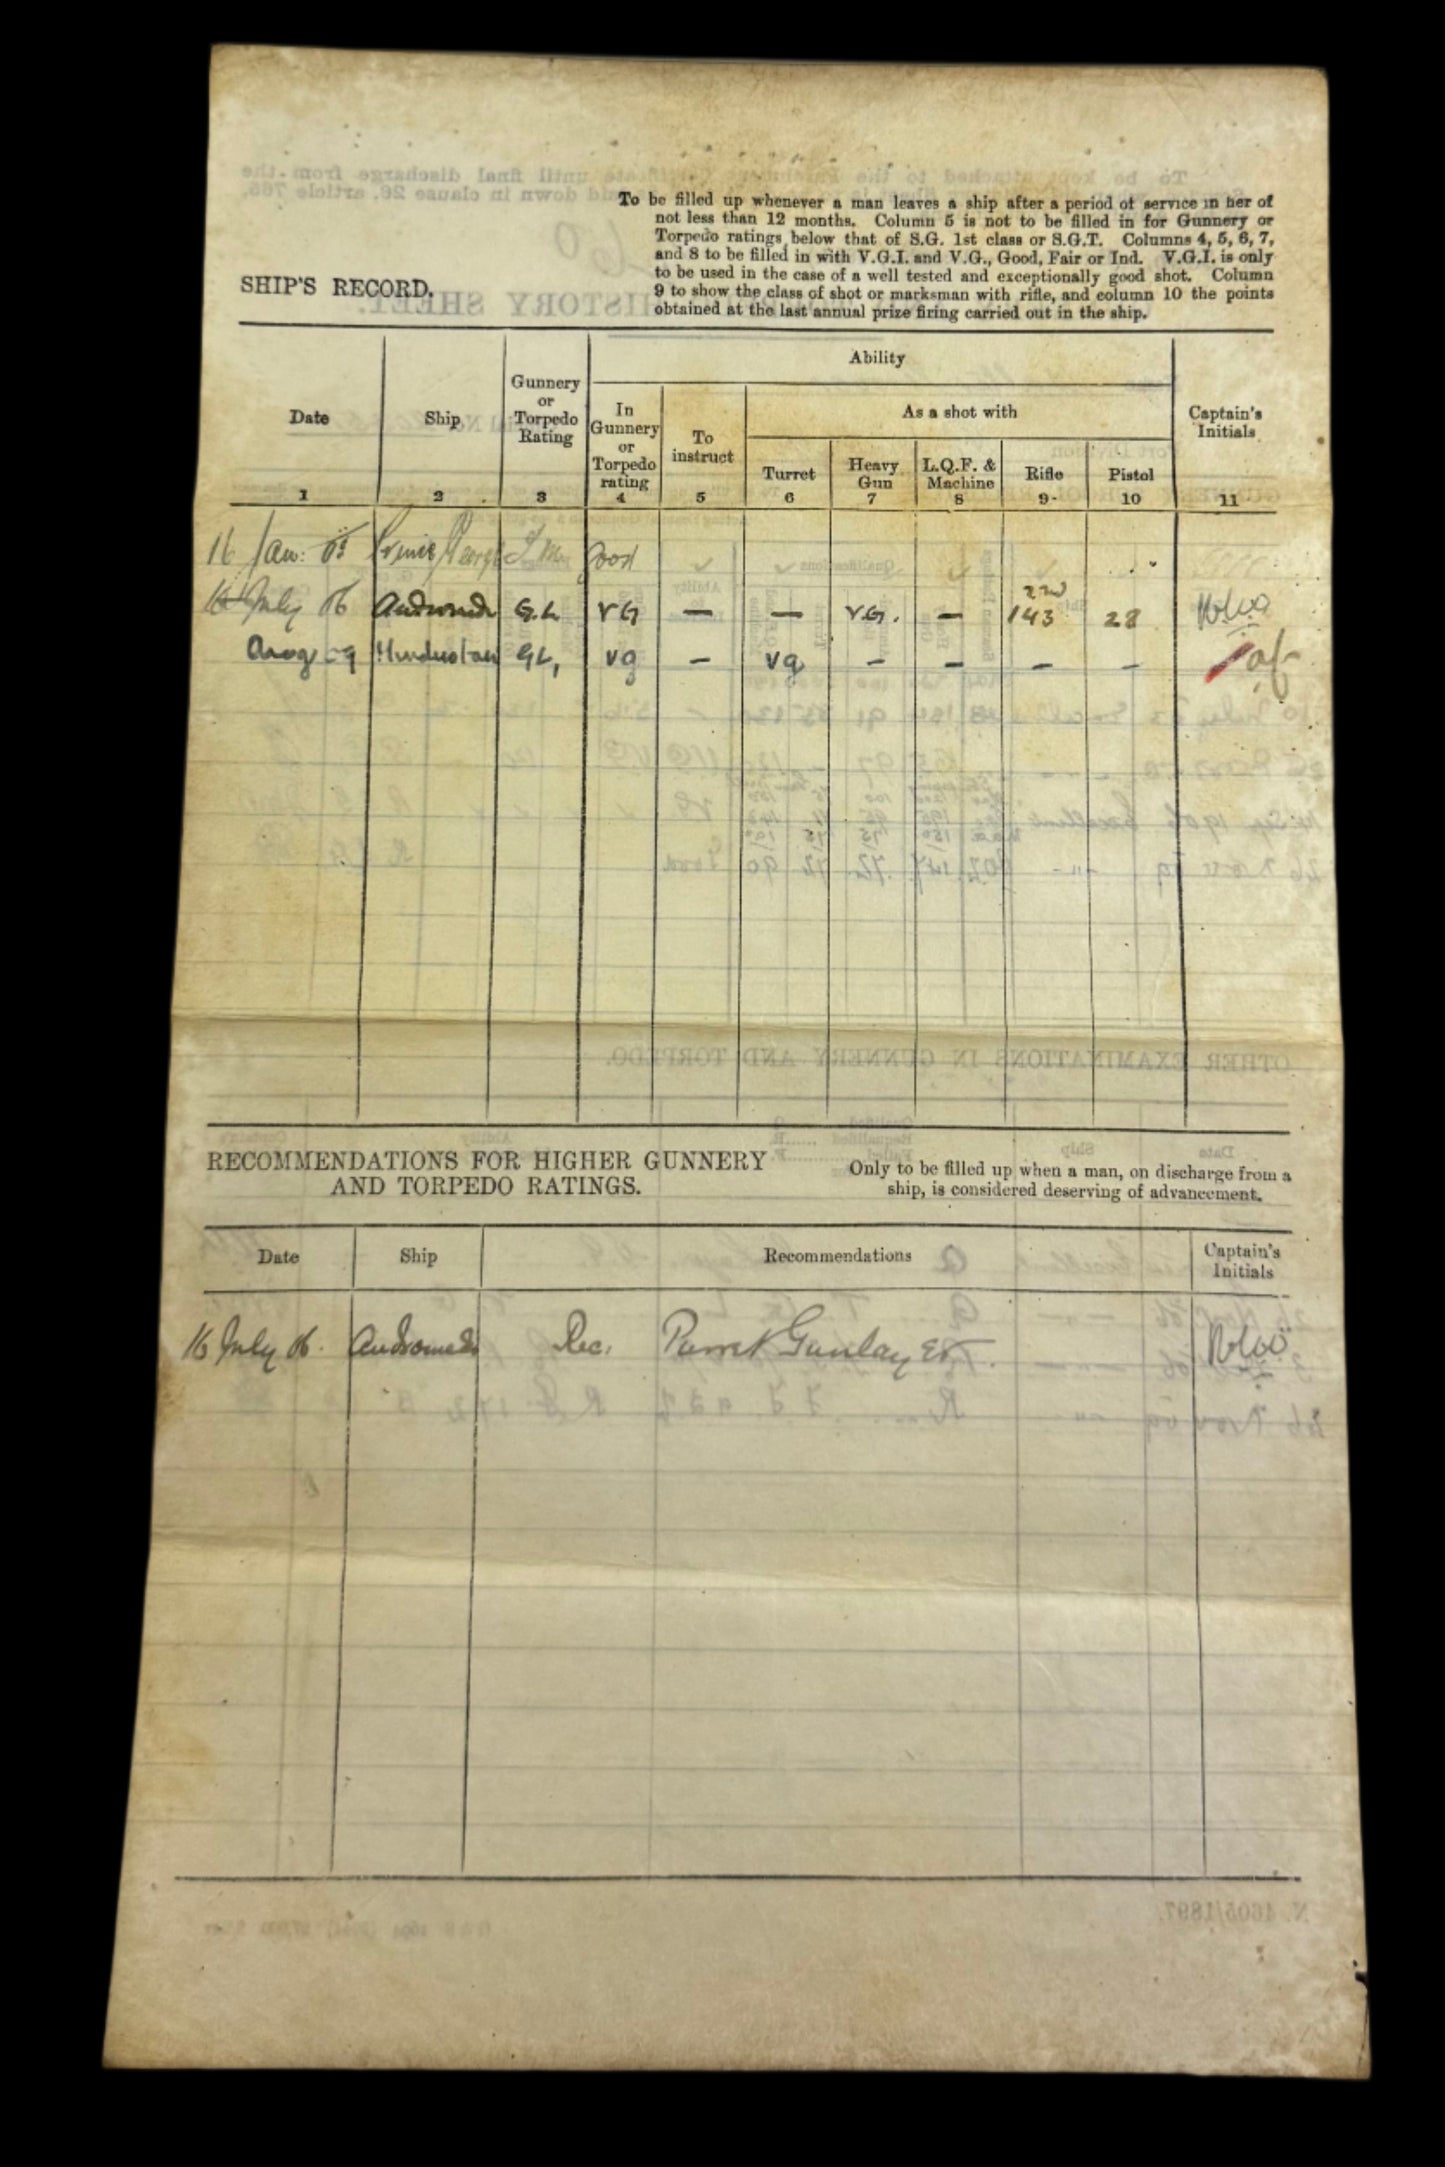 To be filled up whenever a man leaves a ship after a period of service in her of
not less than 12 months. Column 5 is not to be filled in for Gunnery or
Torpedo ratings below that of S.G. 1st class or S.G.T. Columns 4, 5, 6, 7,
and 8 to be filled in with V.G.I. and V.G., Good, Fair or Ind. V.G.I. is only
to be used in the case of a well tested and exceptionally good shot. Column
9 to show the class of shot or marksman with rifle, and column 10 the points
obtained at the last annual prize firing carried out in the ship.
SHIP'S RECORD.
Ability
Date
Ship
Gunnery
or
Torpedo
Rating
In
Gunnery
or
Torpedo
rating
To
instruct
As a shot with
Turret
Heavy
Gun
L.Q.F. &
Machine
Rifle
Pistol
Captain's
Initials
1 2 3 4 5 6 7 8 9 10 11
16 Jan: Prince George Good
July 06 Andromeda G.L VG — — V.G. — 143 28
Aug 09 Hindustan GL, VG — VG — — — —
RECOMMENDATIONS FOR HIGHER GUNNERY
AND TORPEDO RATINGS.
Only to be filled up when a man, on discharge from a
ship, is considered deserving of advancement.
Date Ship Recommendations Captain's
Initials
16 July 06. Andromeda Rec. Gunlayer.